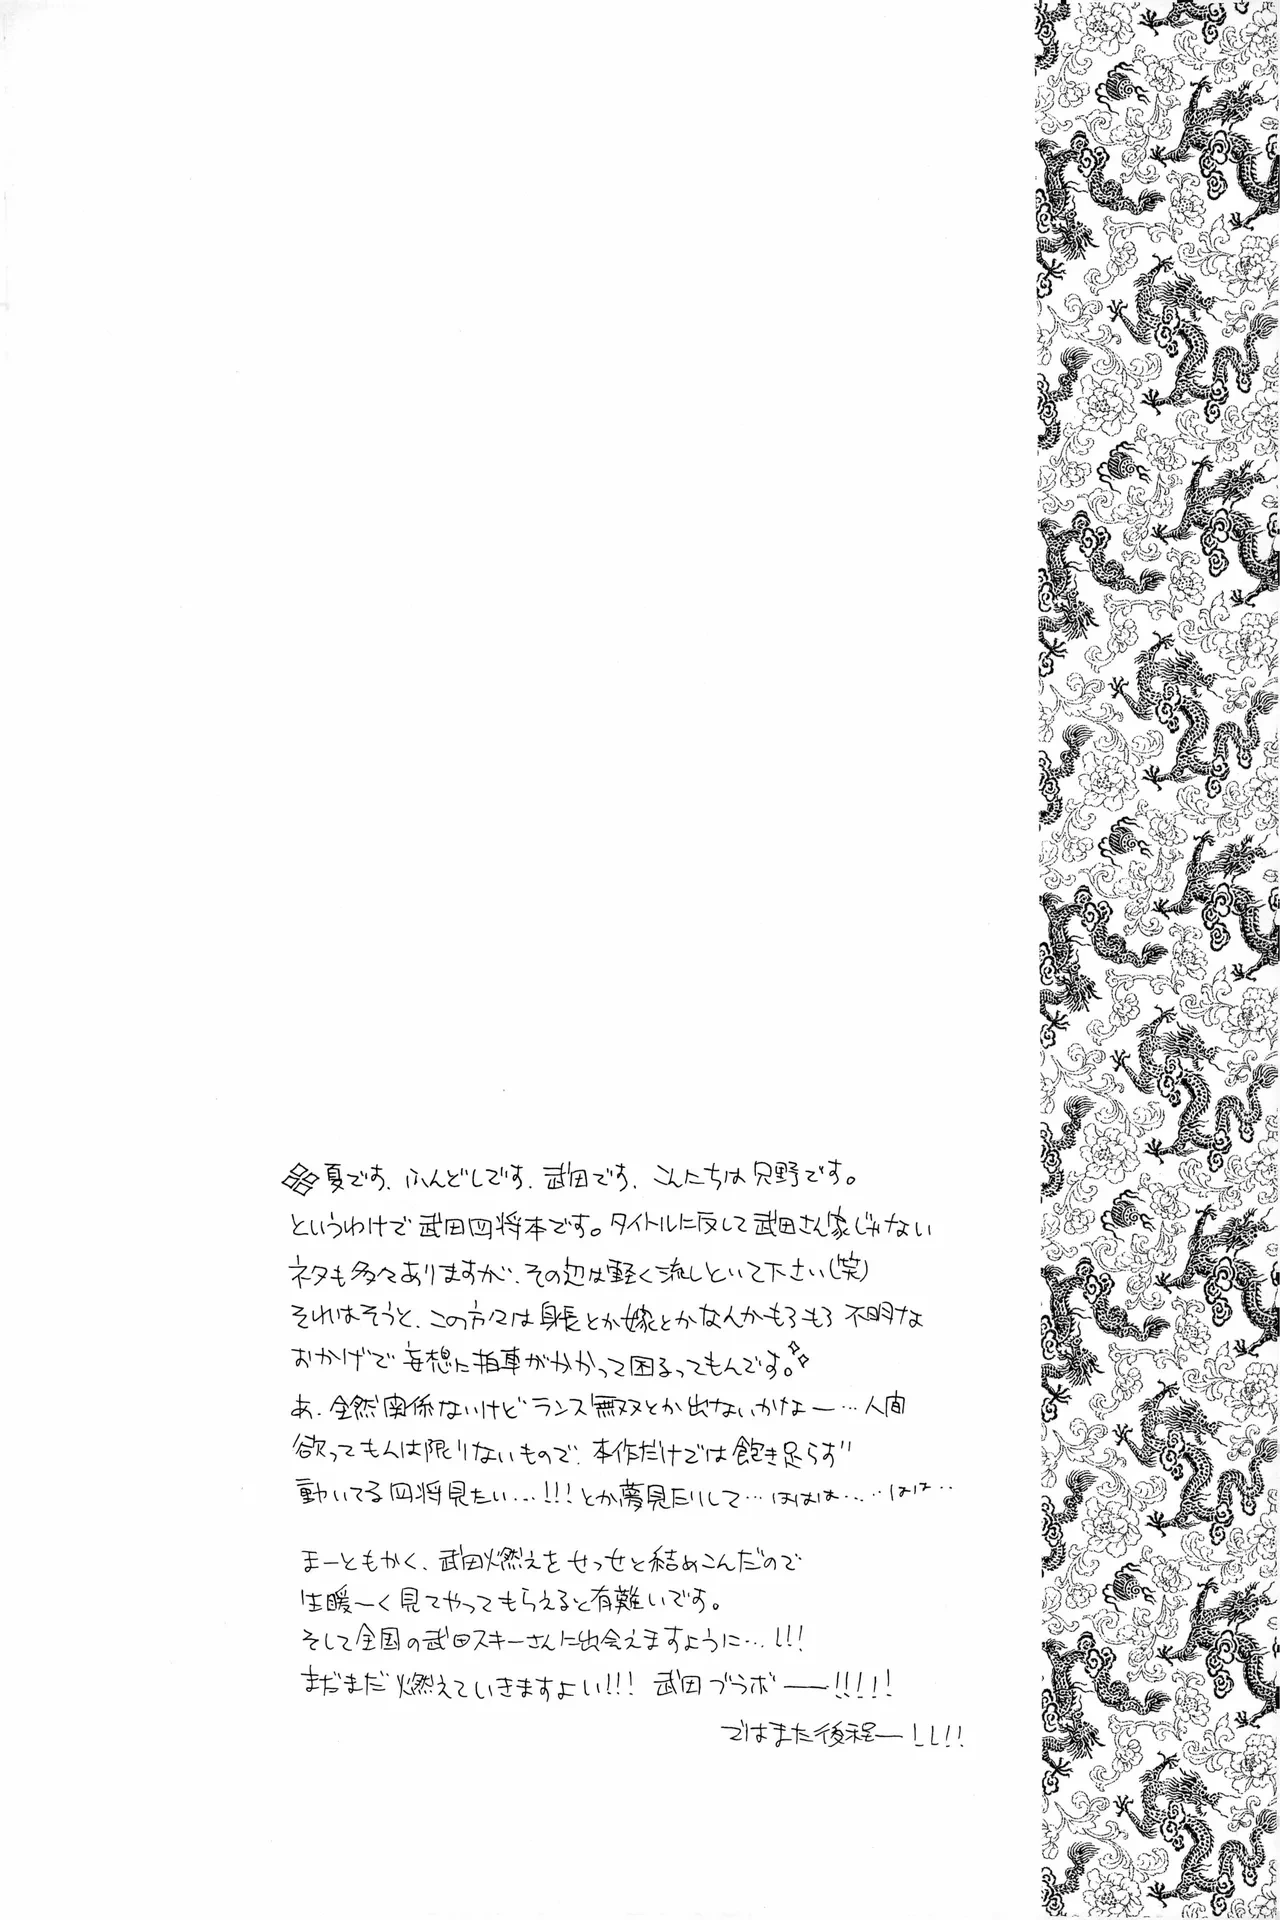 夏です、ふんどしです、武田です、こんにちは只野です。
というわけで武田四将本です。タイトルに反して武田さん家じゃない
ネタも多々ありますが、その辺は軽く流しといて下さい(笑)
それはそうと、この方々は身長とか嫁とかなんかもろもろ不明な
おかげで妄想に拍車がかかって困るってもんです。
あ、全然関係ないけどランス無双とか出ないかなー…人間
欲ってもんは限りないもので、本作だけでは飽き足らず
動いてる四将見たい…!!!とか夢見たりして…ははは…‥はは‥
まーともかく、武田燃えをせっせと詰めこんだので
生暖ーく見てやってもらえると有難いです。
そして全国の武田スキーさんに出会えますように…!!!
まだまだ燃えていきますよい!!! 武田ブラボー!!!!!
ではまた後程ー!!!!